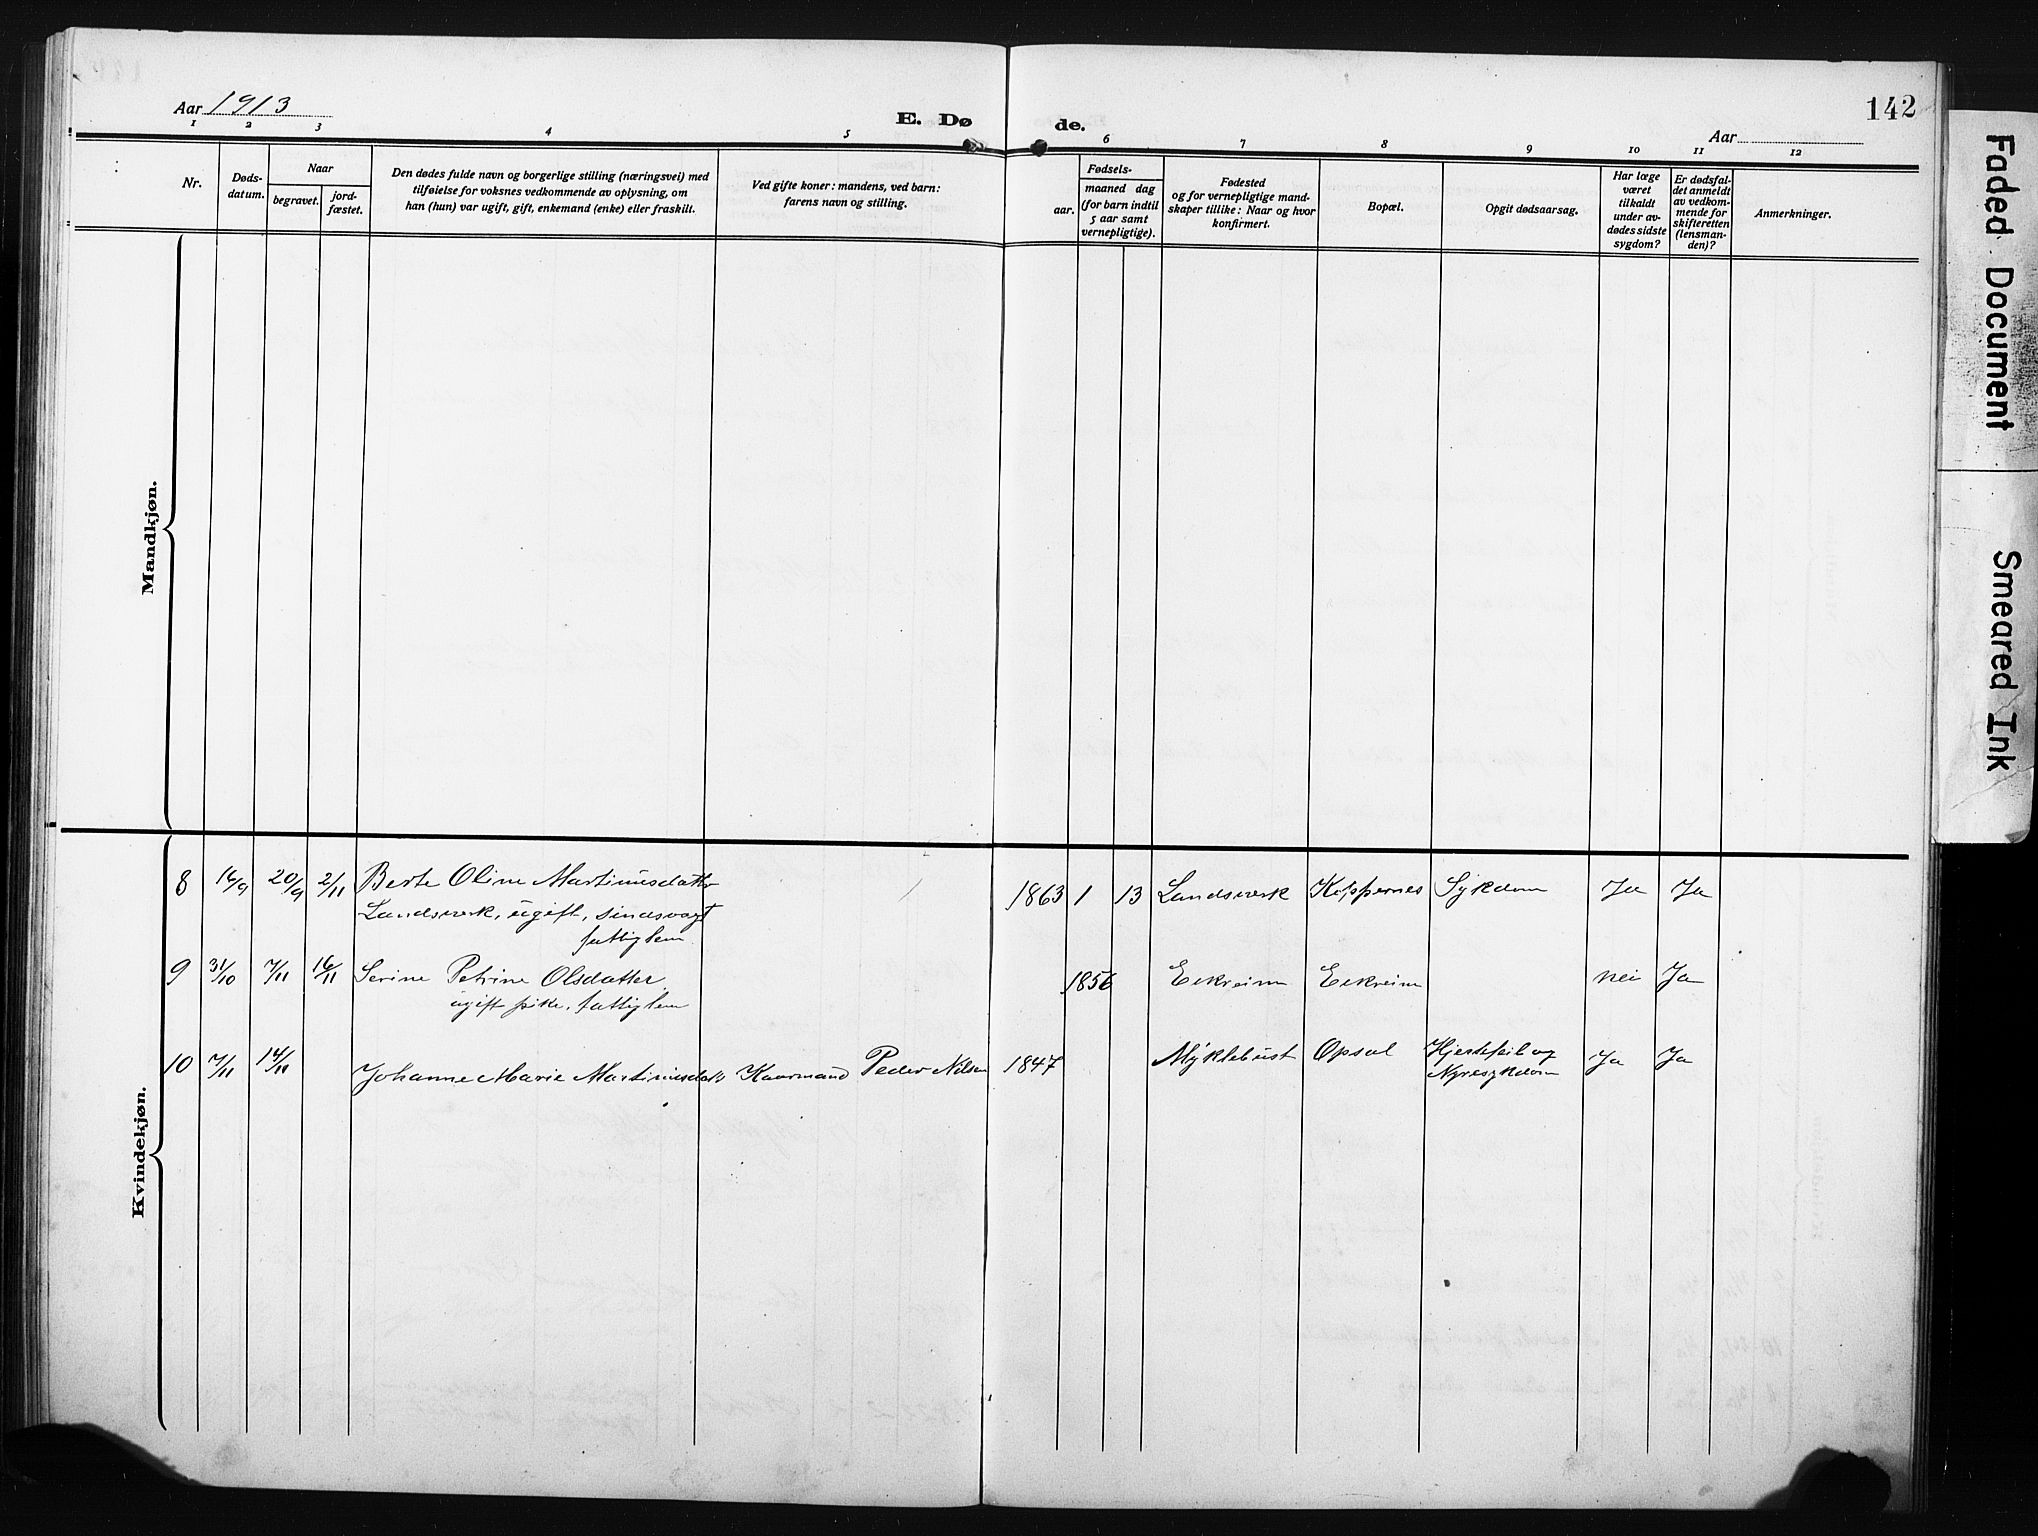 142
Aar 1913
E. Dø de.
Aar
1 2 3 4 5 6 7 8 9 10 11 12
Nr.
Døds-
datum.
Naar
begravet.
jord-
fæstet.
Den dødes fulde navn og borgerlige stilling (næringsvei) med
tilføielse for voksnes vedkommende av oplysning, om
han (hun) var ugift, gift, enkemand (enke) eller fraskilt.
Ved gifte koner: mandens, ved barn:
farens navn og stilling.
Fødsels-
aar.
maaned dag
(for barn indtil
5 aar samt
vernepligtige).
Fødested
og for vernepligtige mand-
skaper tillike: Naar og hvor
konfirmert.
Bopæl.
Opgit dødsaarsag.
Har læge
været
tilkaldt
under av-
dødes sidste
sygdom?
Er dødsfal-
det anmeldt
av vedkom-
mende for
skifteretten
(lensman-
den)?
Anmerkninger.
Mandkjøn.
Kvindekjøn.
8 16/9 20/9 2/11 Berte Oline Martinusdatter 1863 1 13 Landsverk Koppernes Sykdom Ja Ja
Landsverk, ugift, sindssvagt
fattiglem
9 31/10 7/11 16/11 Serine Petrine Olsdatter 1856 Eekreim Eekreim nei Ja
ugift pike, fattiglem
10 7/11 14/11 Johanne Marie Martinusdatr Kaarmand Peder Nilsen 1847 Myklebust Opsal Hjertefeil og
Nyresykdom Ja Ja
Faded Document
Smeared Ink